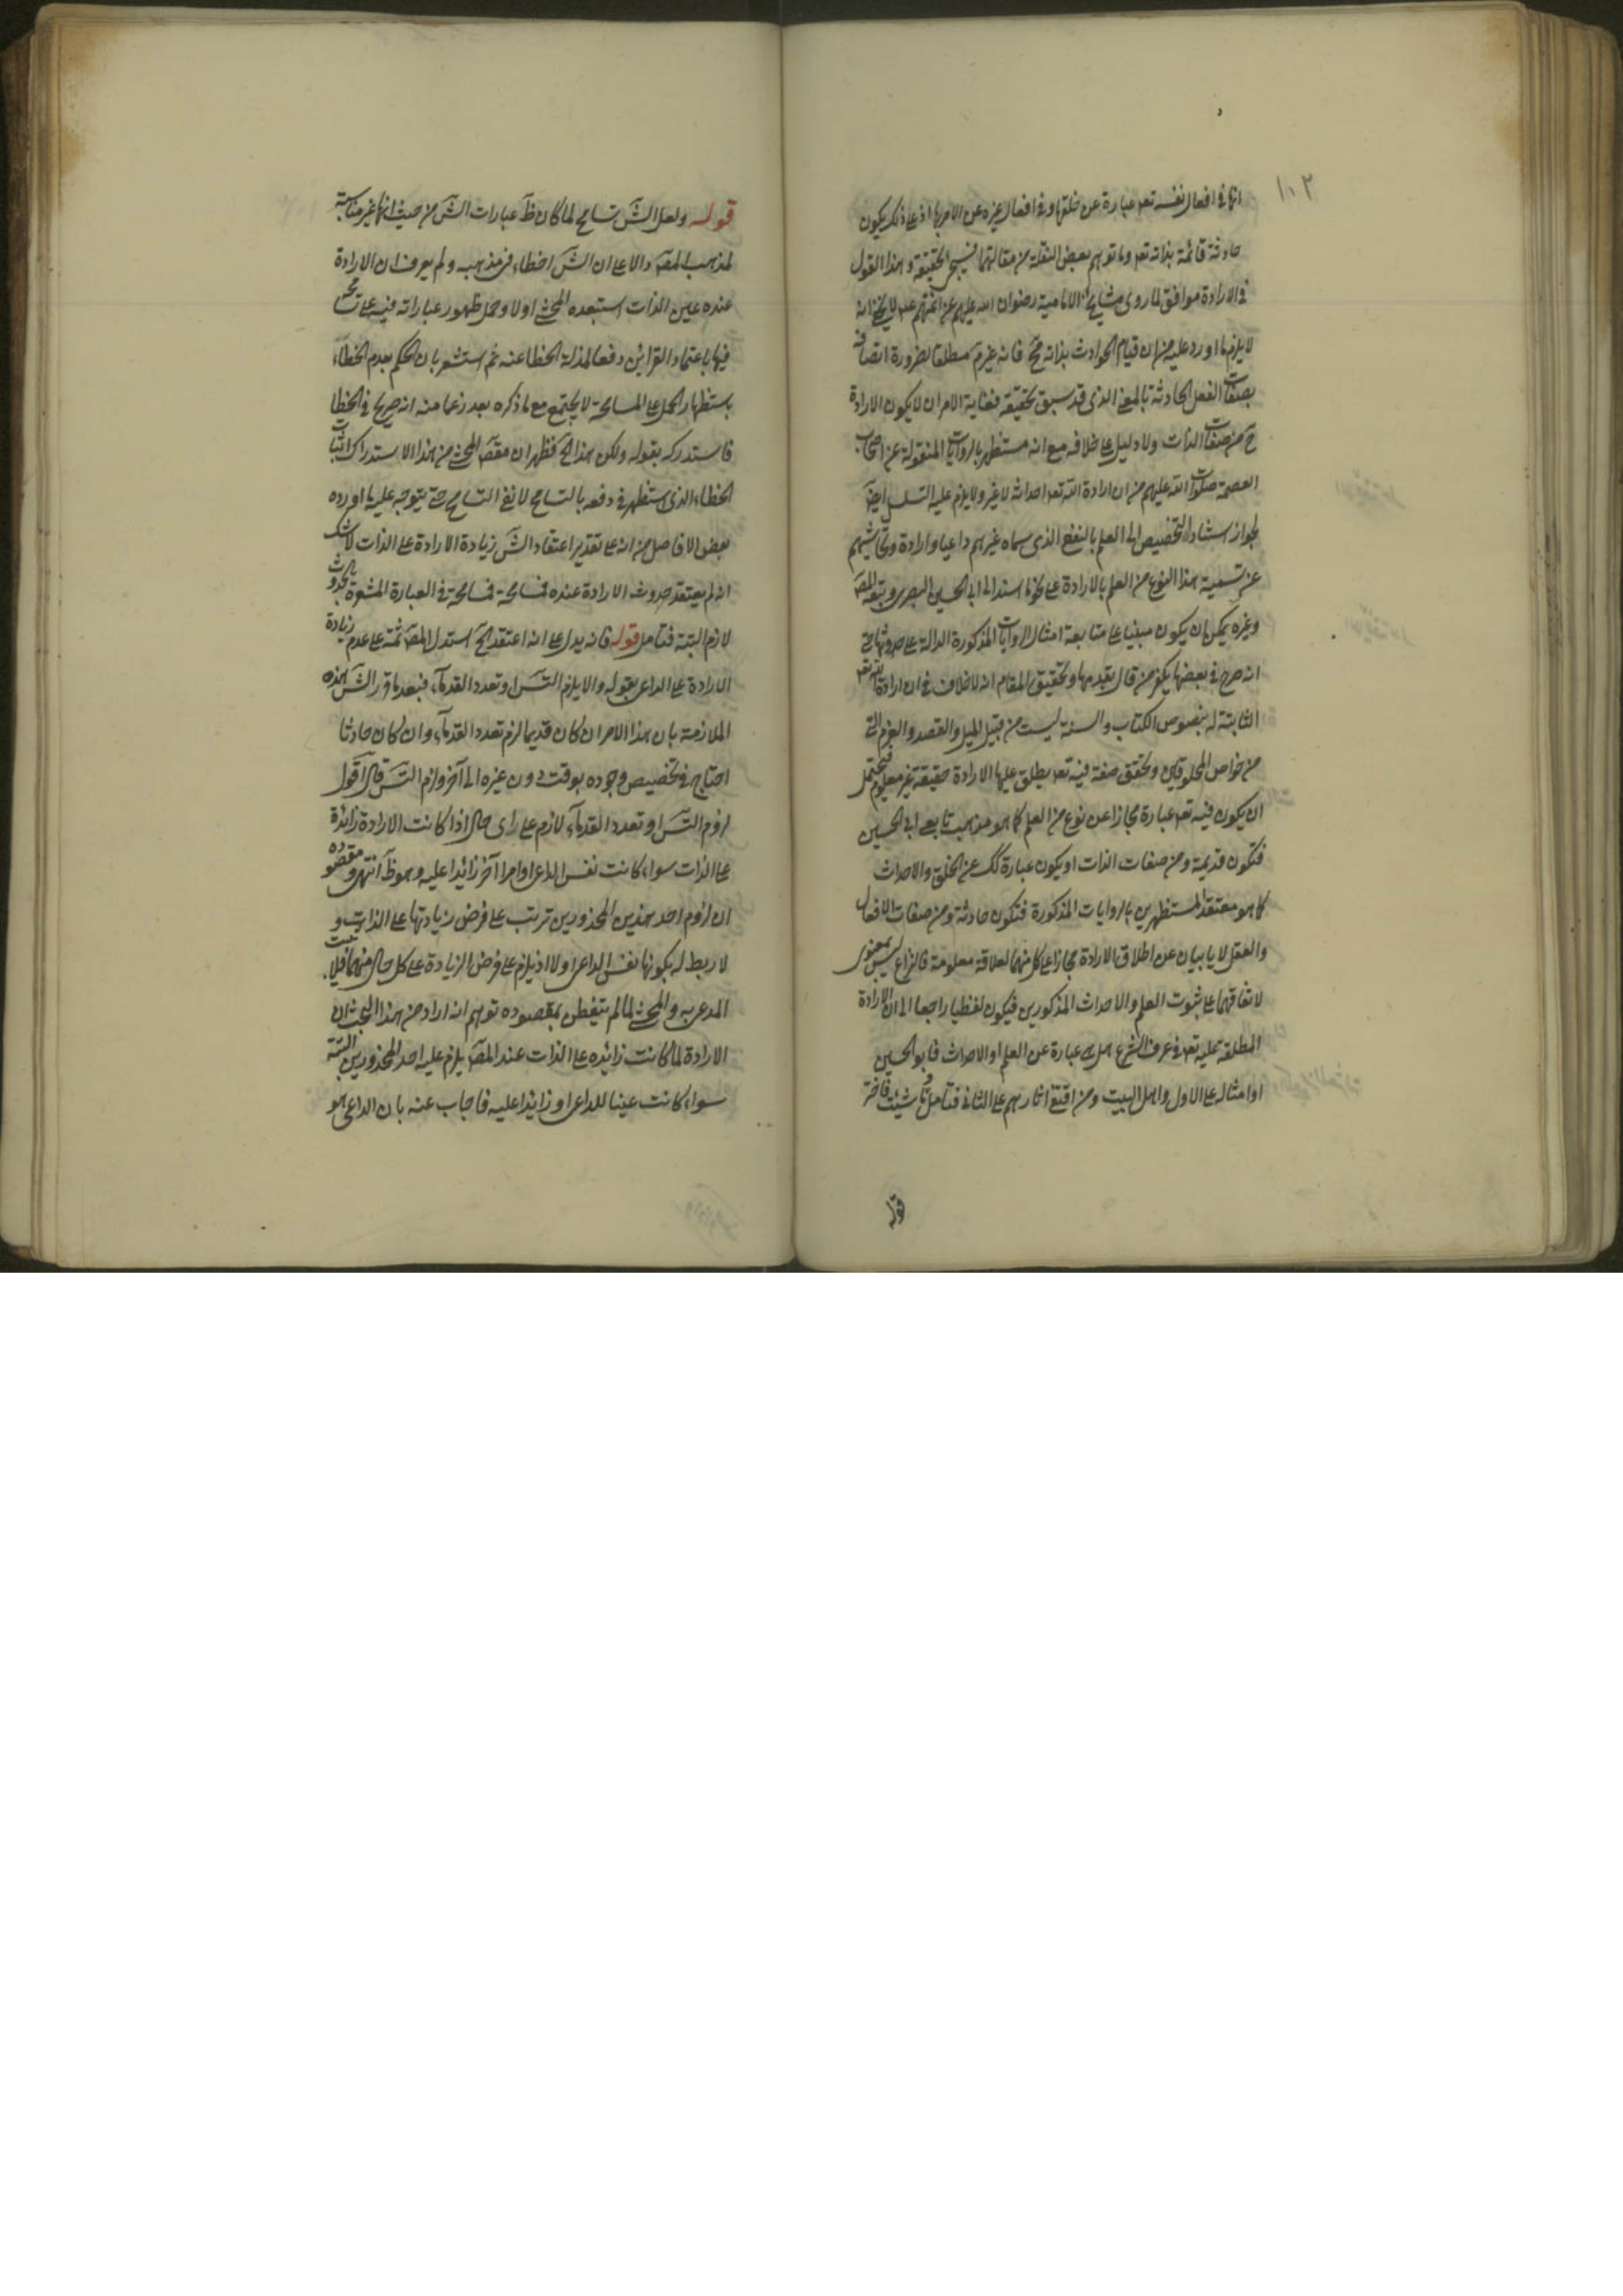 ١٠٢
انها فى افعال نفسه تعه عبارة عن خلقها وفى افعال غيره عن الامر بها اذ على ذلك يكون
حادثة قائمة بذاته تعه وما توهم بعض النقلة من مقالتهما فسيجئ الحقيقة وهذا القول
فى الارادة موافق لما روى مشايخ الامامية رضوان الله عليهم عن ائمتهم عه لا يخفى انه
لا يلزم ما اورد عليه من ان قيام الحوادث بذاته مح فانه غير مم مطلقا لضرورة اتصافه
بصفات الفعل الحادثة بالمعنى الذى قد سبق تحقيقه فغاية الامر ان لا يكون الارادة
ح من صفات الذات ولا دليل على خلافه مع انه مستظهر بالروايات المنقولة عن اصحاب
العصمة صلوات الله عليهم من ان ارادة الله تعه احداثه لا غير ولا يلزم عليه التسلسل ايضا
لجواز استناد التخصيص الى العلم بالنفع الذى سماه غيرهم داعيا وارادة وتحاشيهم
عن تسمية هذا النوع من العلم بالارادة على نحو ما اسند الى ابى الحسين البصرى وتبعه المصه
وغيره يمكن ان يكون مبنيا على متابعة امثال الروايات المذكورة الدالة على حدوثها حتى
انه صرح فى بعضها بكفر من قال بقدمها وتحقيق المقام انه لا خلاف فى ان ارادة الله تعه
الثابتة له بنصوص الكتاب والسنة ليست من قبيل الميل والقصد والعزم التى
من خواص المخلوقين وتحقق صفة فيه تعه يطلق عليها الارادة حقيقة غير معلوم فيحتمل
ان يكون فيه تعه عبارة مجازا عن نوع من العلم كما هو مذهب تابعى ابى الحسين
فتكون قديمة ومن صفات الذات او يكون عبارة كك عن الخلق والاحداث
كما هو معتقد المستظهرين بالروايات المذكورة فتكون حادثة ومن صفات الافعال
والعقل لا يابى بان عن اطلاق الارادة مجازا على كل منهما لعلاقة معلومة فالنزاع ليس بمعنوى
لاتفاقهما على ثبوت العلم والاحداث المذكورين فيكون لفظيا راجعا الى ان الارادة
المطلقة عليه تعه فى عرف الشرع هل هى عبارة عن العلم او الاحداث فابو الحسين
او امثاله على الاول واهل البيت ومن اقتفى اثارهم على الثانى فتامل
قوله
قوله ولعل الش تسامح لما كان ظ عبارات الش من حيث انها غير مناسبة
لمذهب المصه دالا على ان الش اخطاء فى مذهبه ولم يعرف ان الارادة
عنده عين الذات استبعده المحشى اولا وحمل ظهور عباراته فيه على تسامحه
فيها باعتماد القرائن دفعا لمذلة الخطا عنه ثم استشعر بان الحكم بعدم الخطاء
باستظهار الحمل على المسامحة لا يجتمع مع ما ذكره بعد زعما منه انه صريح فى الخطا
فاستدركه بقوله ولكن هذا الخ فظهر ان مقصه المحشى من هذا الاستدراك اثبات
الخطاء الذى استظهر فى دفعه بالتسامح لا نفى التسامح حتى يتوجه عليه ما اورده
بعض الافاضل من انه على تقدير اعتقاد الش زيادة الارادة على الذات لا شك
انه لم يعتقد حدوث الارادة عنده فمسامحة فى العبارة المشعرة بالحدوث
لازم البتة فتامل قوله فانه يدل على انه اعتقد الخ استدل المصه ثمة على عدم زيادة
الارادة على الداعى بقوله والا يلزم التس او تعدد القدماء فبعد ما قرر الش هذه
الملازمة بان هذا الامر ان كان قديما لزم تعدد القدماء وان كان حادثا
احتاج فى تخصيص وجوده بوقت دون غيره الى آخر ولزم التس قال اقول
لزوم التس او تعدد القدماء لازم على راى حال اذا كانت الارادة زائدة
على الذات سواء كانت نفس الداعى او امرا آخر زائدا عليه وهو ظ انتهى ومقصوده
ان لزوم احد هذين المحذورين ترتب على فرض زيادتها على الذات و
لا ربط له بكونها نفس الداعى اولا اذ يلزم على فرض الزيادة على كل حال منهما فلا يثبت
المدعى به والمحشى لما لم يتفطن بمقصوده توهم انه اراد من هذا البحث ان
الارادة لما كانت زائده على الذات عند المصه يلزم عليه احد المحذورين البتة
سواء كانت عينا للداعى او زايدا عليه فاجاب عنه بان الداعى هو